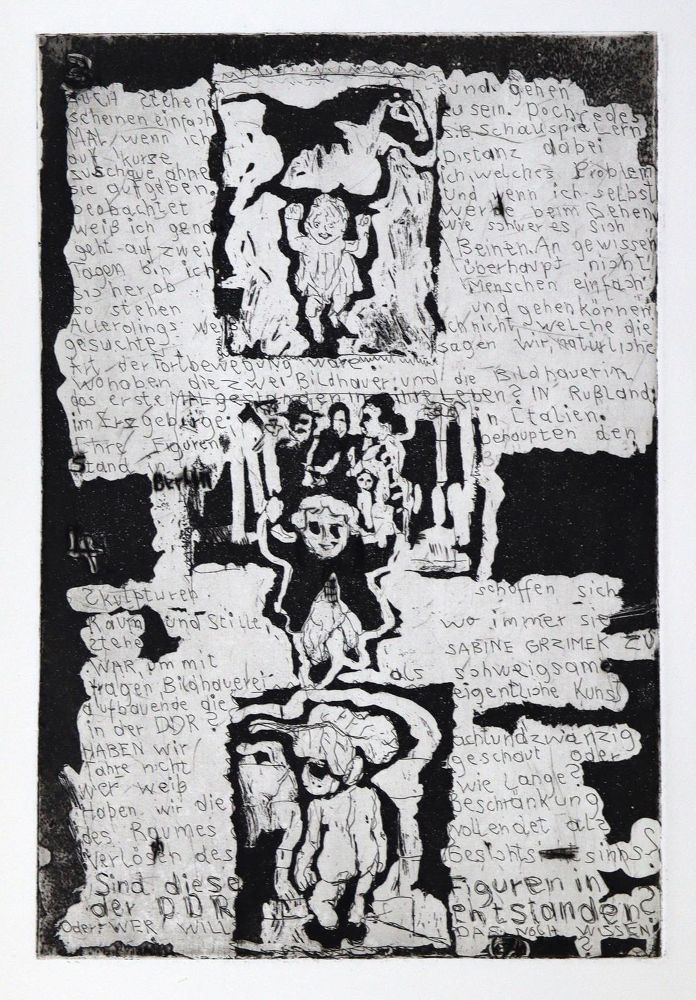 AUCH stehen und gehen
scheinen einfach zu sein. Doch jedes
MAL, wenn ich z.B. Schauspielern
auf kurze Distanz dabei
zuschaue, ohne ich, welches Problem
sie aufgeben. und wenn ich selbst
beobachtet werde beim Gehen
weiß ich genau wie schwer es sich
geht auf zwei Beinen. An gewissen
Tagen bin ich überhaupt nicht
sicher, ob Menschen einfach
so stehen und gehen können
Allerdings weiß ich nicht, welche die
gesuchte, sagen wir, natürliche
Art der Fortbewegung wäre.
Wo haben die zwei Bildhauer und die Bildhauerin
das erste MAL gestanden in ihre Leben? IN Rußland
im Erzgebirge in Italien.
Ihre Figuren behaupten den
Stand in
Berlin
Skulpturen schaffen sich
Raum und Stille wo immer sie
stehen SABINE GRZIMEK ZU
WAR, um mit als schweigsame
tragen Bildhauerei eigentliche Kunst
aufbauende die
in der DDR? achtundzwanzig
HABEN wir geschaut oder
Jahre nicht wie lange?
wer weiß Beschränkung
Haben wir die vollendet als
des Raumes Gesichtssinns?
Verlösen des
Sind diese Figuren in
der DDR entstanden?
Oder: WER WILL DAS NOCH WISSEN
?